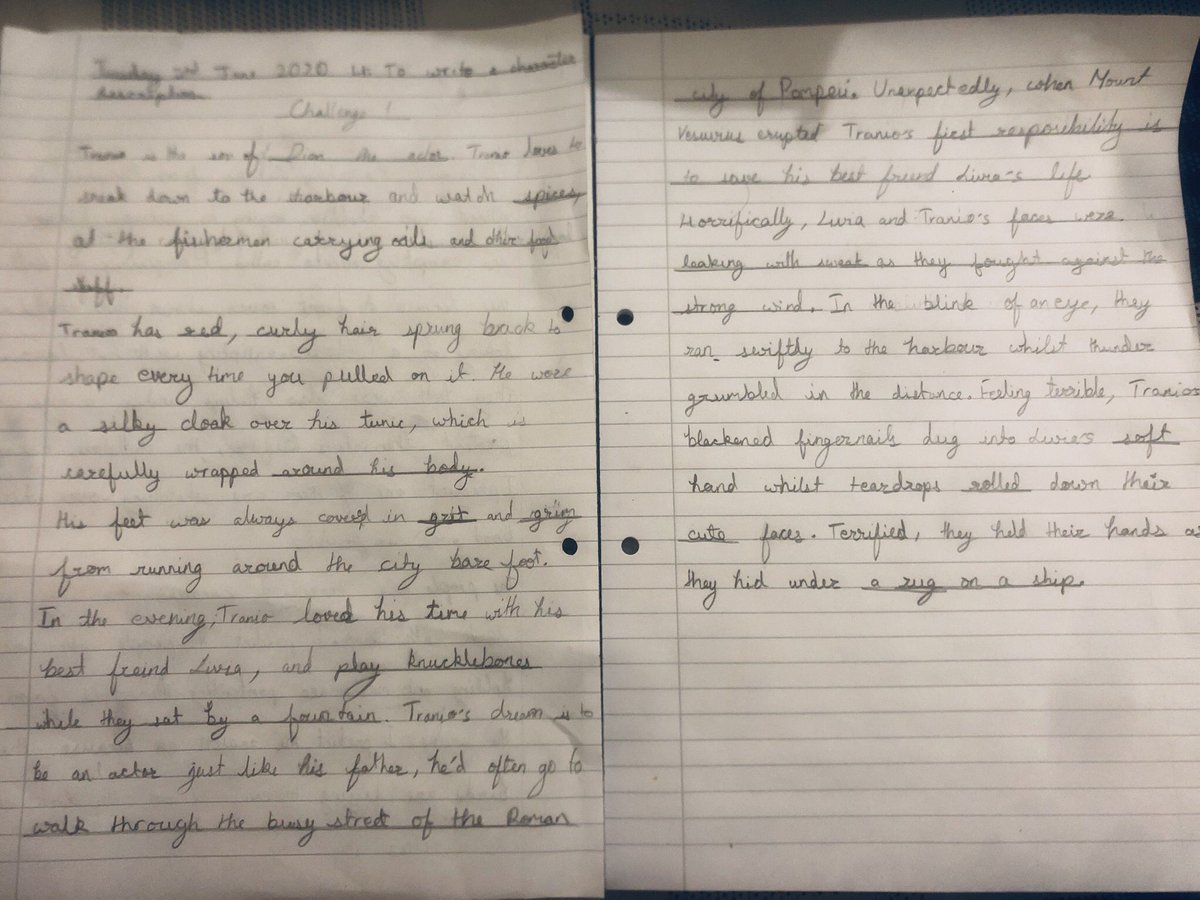 Tuesday 2nd June 2020 LI: To write a character
description
Challenge!
Tranio is the son of Dion the actor. Tranio loves to
sneak down to the harbour and watch spices,
at the fishermen carrying oils and other food
stuff.
Tranio has red, curly hair sprung back to
shape every time you pulled on it. He wore
a silky cloak over his tunic, which is
carefully wrapped around his body.
His feet was always covered in grit and grim
from running around the city bare foot.
In the evening, Tranio loved his time with his
best freind Livia, and play knucklebones
while they sat by a fountain. Tranio's dream is to
be an actor just like his father, he'd often go to
walk through the busy street of the Roman
city of Pompeii. Unexpectedly, when Mount
Vesuvius erupted Tranio's first responsibility is
to save his best freind Livia's life
Horrifically, Livia and Tranio's faces were
leaking with sweat as they fought against the
strong wind. In the blink of an eye, they
ran swiftly to the harbour whilst thunder
grumbled in the distance. Feeling terrible, Tranios
blackened fingernails dug into Livia's soft
hand whilst teardrops rolled down their
cute faces. Terrified, they held their hands as
they hid under a rug on a ship.